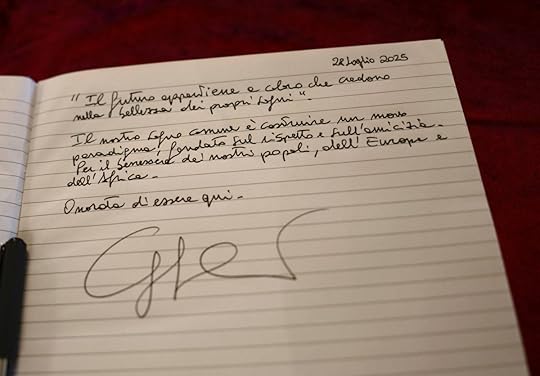 28 Luglio 2025
"Il futuro appartiene a coloro che credono
nella bellezza dei propri sogni".
Il nostro sogno comune è costruire un nuovo
paradigma, fondato sul rispetto e sull'amicizia.
Per il benessere dei nostri popoli, dell'Europa e
dell'Africa.
Onorata d'essere qui.